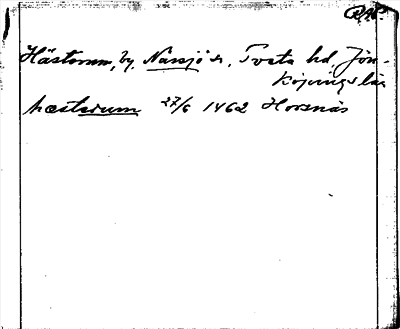 Hästerum, by, Nässjö sn, Tveta hd, Jön-
köpings län
hæsterum 27/6 1462 Horsnäs